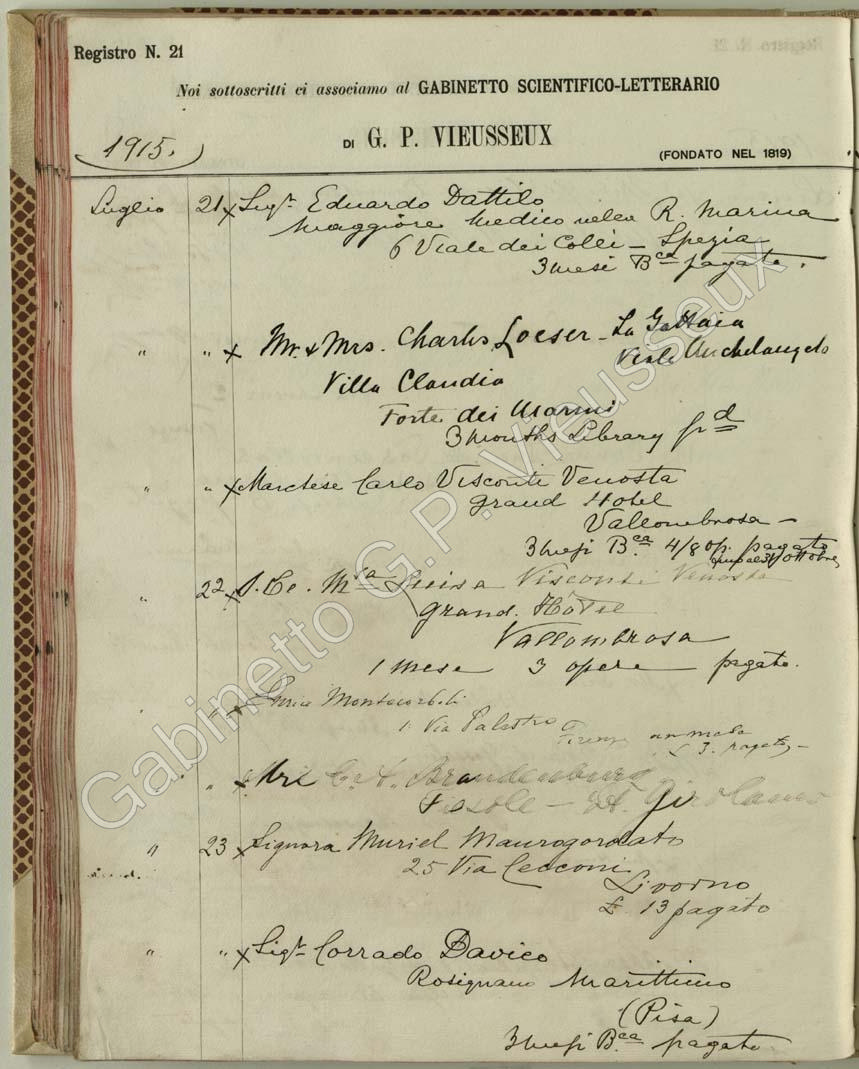 Registro N. 21
Noi sottoscritti ci associamo al GABINETTO SCIENTIFICO-LETTERARIO
DI G. P. VIEUSSEUX
1915.
(FONDATO NEL 1819)
Luglio 21 x Sigr. Eduardo Dattilo
Maggiore Medico nella R. Marina
6 Viale dei Colli - Spezia
3 mesi Bca pagato.
" " x Mr. & Mrs. Charles Loeser - La Gattaia
Viale Michelangelo
Villa Claudia
Forte dei Marmi
3 Months Library pd
" " x Marchese Carlo Visconti Venosta
Grand Hotel
Vallombrosa -
3 mesi Bca. 4/8 op. pagato
31 ottobre
" 22 x Msa Luisa Visconti Venosta
Grand. Hôtel
Vallombrosa
1 mese 3 opere pagato.
" " x Montecorboli
1 Via Palestro Firenze un mese
£ 3. pagato -
" " x Brandenburg
Fiesole - St. Girolamo
" 23 x Signora Muriel Maurogordato
25 Via Cecconi
Livorno
£ 13 pagato
" " x Sigr. Corrado Davico
Rosignano Marittimo
(Pisa)
3 mesi Bca pagato
Gabinetto G.P. Vieusseux